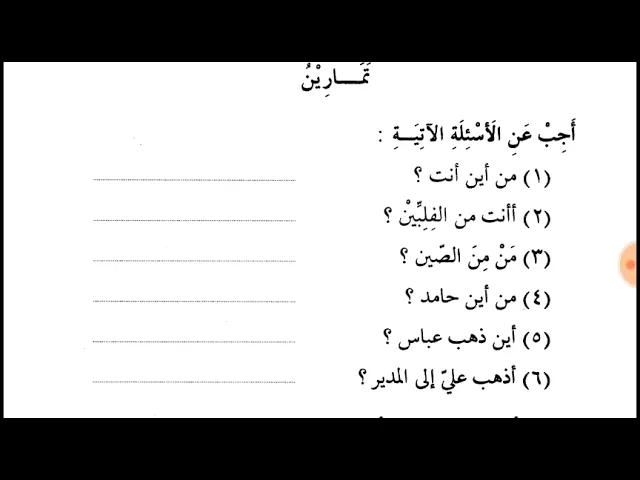 تَمَـــارِيْنُ
أَجِبْ عَنِ الَأسْئِلَةِ الآتِيَـــةِ :
(١) من أين أنت ؟
(٢) أأنت من الفِلِبِّيْنْ ؟
(٣) مَنْ مِنَ الصّين ؟
(٤) من أين حامد ؟
(٥) أين ذهب عباس ؟
(٦) أذهب عليّ إلى المدير ؟